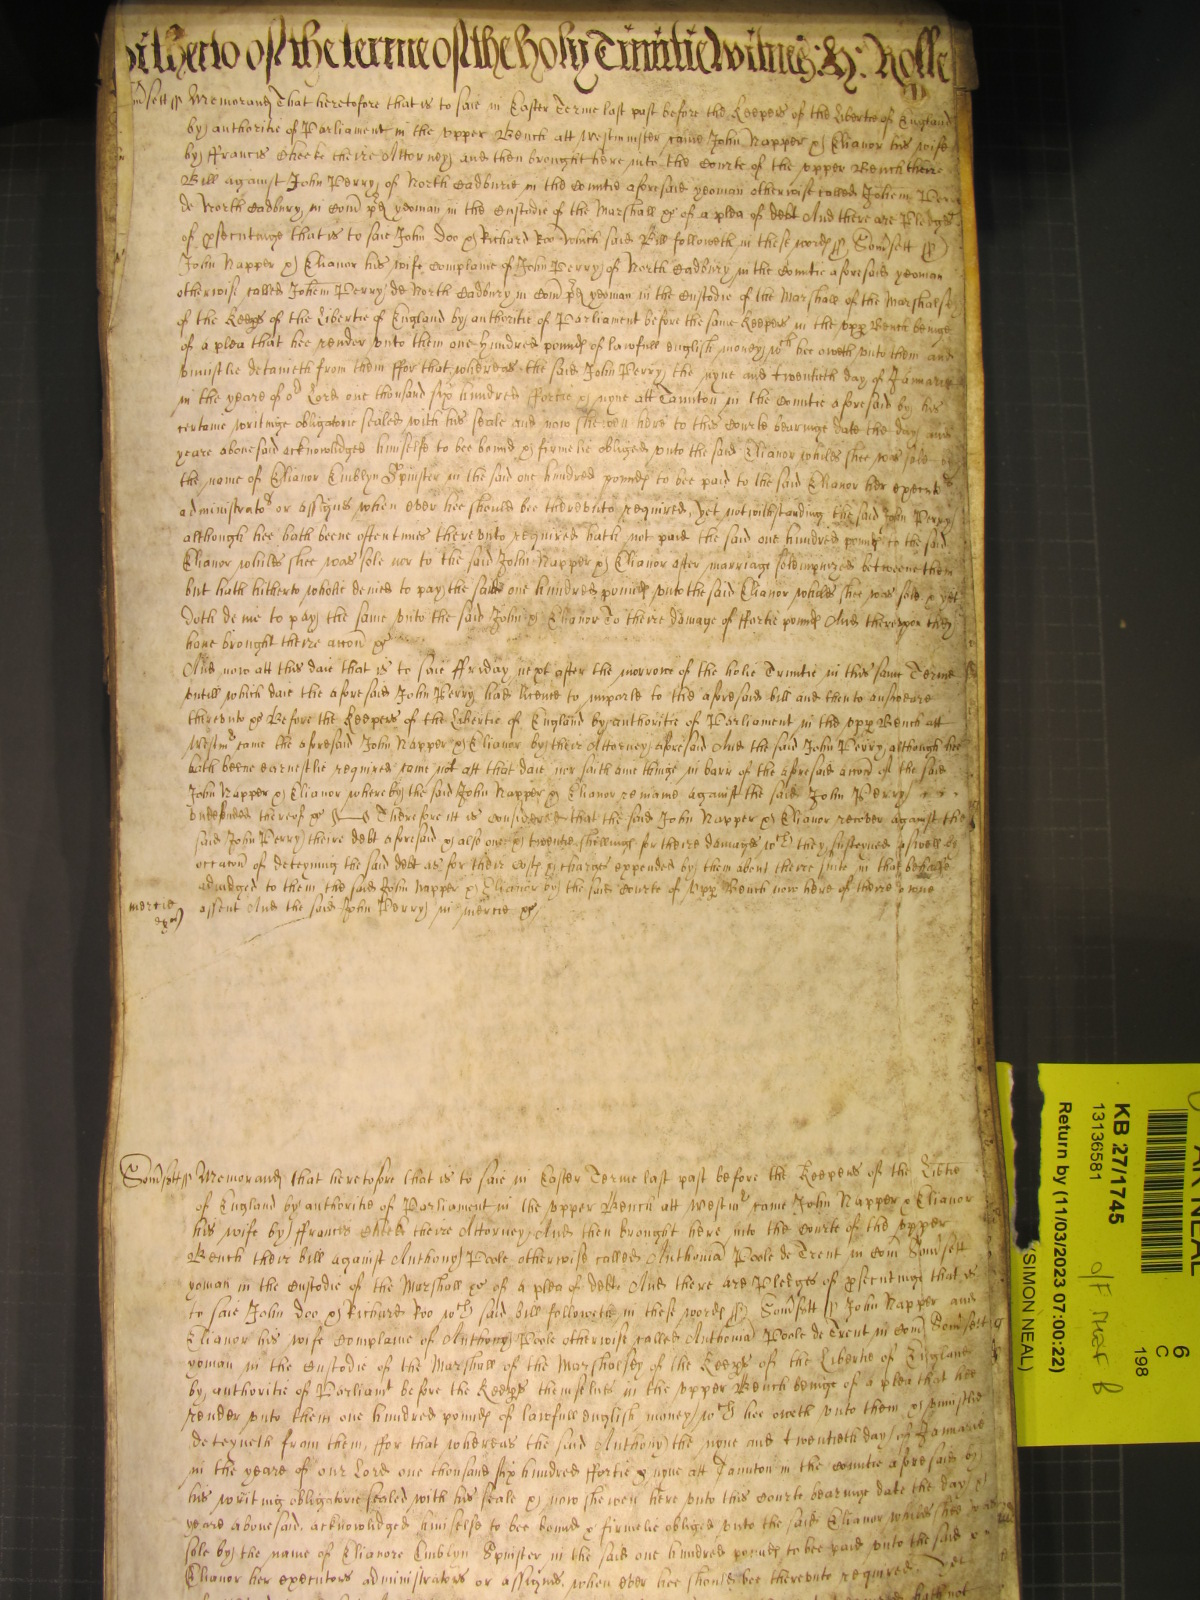 hitherto of the terme of the holy Trinitie Witnes: H: Rolle
Somsett ss Memorand That heretofore that is to saie in Easter Terme last past before the Keepers of the Libertie of England
by authoritie of Parliament in the vpper Bench att Westminster came John Napper & Elianor his wife
by ffrancis Cheeke theire Attorney and then brought here into the Courte of the vpper Bench there
Bill against John Perry of North Cadburie in the Countie aforesaid yeoman otherwise called Johem Perry
de North Cadbury in Com pd yeoman in the Custodie of the Marshall &c of a plea of debt And there are Pledges
of psecutinge that is to saie John Doo & Richard Roo Which said Bill followeth in these words ss Somsett ss
John Napper & Elianor his wife complaine of John Perry of North Cadbury in the Countie aforesaid yeoman
otherwise called Johem Perry de North Cadbury in Com pd yeoman in the Custodie of the Marshall of the Marshalsey
of the Keeps of the Libertie of England by authoritie of Parliament before the same Keepers in the vpp Bench beinge
of a plea that hee render vnto them one hundred pounds of lawfull english money wch hee oweth vnto them and
vniustlie detaineth from them ffor that whereas the said John Perry the nyne and twentieth day of Januarie
in the yeare of or Lord one thousand six hundred ffortie & nyne att Taunton in the Countie aforesaid by his
certaine writinge obligatorie sealed with his seale and now shewen here to this Courte bearinge date the day and
yeare abouesaid acknowledged himselfe to bee bound & firmelie obliged vnto the said Elianor whiles shee was sole by
the name of Elianor Emblyn Spinster in the said one hundred pounds to bee paid to the said Elianor her executors
administrators or assigns when ever hee should bee therevnto required, yet notwithstanding the said John Perry
although hee hath beene oftentimes therevnto required hath not paid the said one hundred pounds to the said
Elianor whiles shee was sole nor to the said John Napper & Elianor after marriage solempnized betweene them
but hath hitherto wholie denied to pay the said one hundred pounds vnto the said Elianor whiles shee was sole & yet
doth denie to pay the same vnto the said John & Elianor To theire damage of ffortie pounds And therevpon they
haue brought theire accon &c
And now att this daie that is to saie ffriday next after the morrowe of the holie Trinitie in this same Terme
vntill which daie the aforesaid John Perry had licence to imparle to the aforesaid bill and then to answeare
therevnto &c Before the Keepers of the Libertie of England by authoritie of Parliament in the vpp Bench att
Westmr came the aforesaid John Napper & Elianor by their Attorney aforesaid And the said John Perry although hee
hath beene earnestlie required come not att that daie nor saith anie thinge in barr of the aforesaid accon of the said
John Napper & Elianor whereby the said John Napper & Elianor remaine against the said John Perry
vndefended thereof &c Therefore itt is considered that the said John Napper & Elianor recover against the
said John Perry theire debt aforesaid & alsoe one & twentie shillings for theire damages wch they susteyned aswell by
occacon of deteyning the said debt as for their Costs & charges expended by them about theire suite in that behalfe
adiudged to them the said John Napper & Elianor by the said Courte of vpp Bench now here of theire owne
assent And the said John Perry in mercie &c
mercie
Somsett ss Memorand that heretofore that is to saie in Easter Terme last past before the Keepers of the Libtie
of England by authoritie of Parliament in the vpper Bench att Westmr came John Napper & Elianor
his wife by ffrancis Cheeke theire Attorney And then brought here into the Courte of the vpper
Bench their bill against Anthony Poole otherwise called Anthonia Poole de Trent in Com Somsett
yoman in the custodie of the Marshall &c of a plea of debt And there are Pledges of psecutinge that is
to saie John Doo & Richard Roo wch said bill followeth in these words ss Somsett ss John Napper and
Elianor his wife Complaine of Anthony Poole otherwise called Anthonia Poole de Trent in Com Somsett
yoman in the custodie of the Marshall of the Marshalsey of the Keeps of the Libertie of England
by authoritie of Parliamt before the Keeps themselues in the vpper Bench beinge of a plea that hee
render vnto them one hundred pounds of lawfull english money wch hee oweth vnto them & vniustlie
deteyneth from them, ffor that whereas the said Anthony the nyne and twentieth day of Januarie
in the yeare of our Lord one thousand six hundred ffortie & nyne att Taunton in the Countie aforesaid by
his writing obligatorie sealed with his seale & now shewen here vnto this Courte bearinge date the day &
yeare abouesaid, acknowledged himselfe to bee bound & firmelie obliged vnto the said Elianor whiles shee was
sole by the name of Elianore Emblyn Spinster in the said one hundred pounds to bee paid vnto the said
Elianor her executors administrators or assigns, when ever hee should bee therevnto required. Yet
hath not
KB 27/1745
13136581
Return by (11/03/2023 07:00:22)
(SIMON NEAL)
6
C
198